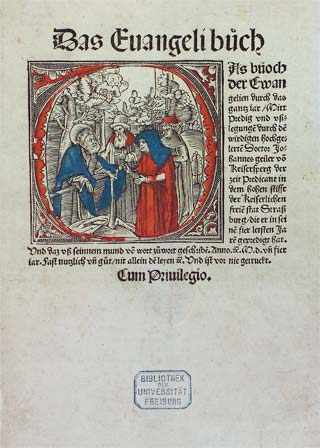 Das Euangeli bůch
Jls bůoch
der Ewan
gelien durch das
gantz iar / Mitt
Predig vnd vß⸗
legungē durch dē
wirdigen hochge⸗
lertē Doctor Jo⸗
hannes geiler vō
Keisersperg der
zeit Predicant in
dem hohen stifft
der Keiserlichen
freiē stat Straß
burg / die er in sei
nen fier letsten Ja
rē gepredigt hat.
Vnd daz vß seinnem mund vō wort zůwort geschribē. Anno. M. D. vñ fier
iar. Fast nutzlich vñ gůt / nit allein dē leyen ꝛc. Vnd ist vor nie getruckt.
Cum Priuilegio.
BIBLIOTHEK
DER
UNIVERSITÄT
FREIBURG